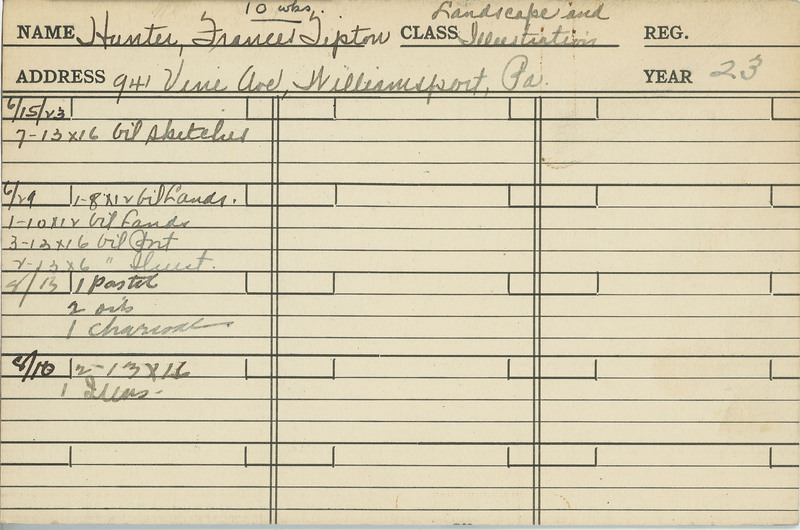 10 wks.
NAME Hunter, Frances Tipton CLASS Landscape and Illustration REG.
ADDRESS 941 Vine Ave, Williamsport, Pa. YEAR 23
6/15/23
7-13x16 Oil Sketches
6/29 1-8x12 Oil Lands.
1-10x12 Oil Lands
3-13x16 Oil Port
2-13x16 " Illust.
8/13 1 Pastel
2 oils
1 Charcoal
8/10 2-13x16
1 Illus-